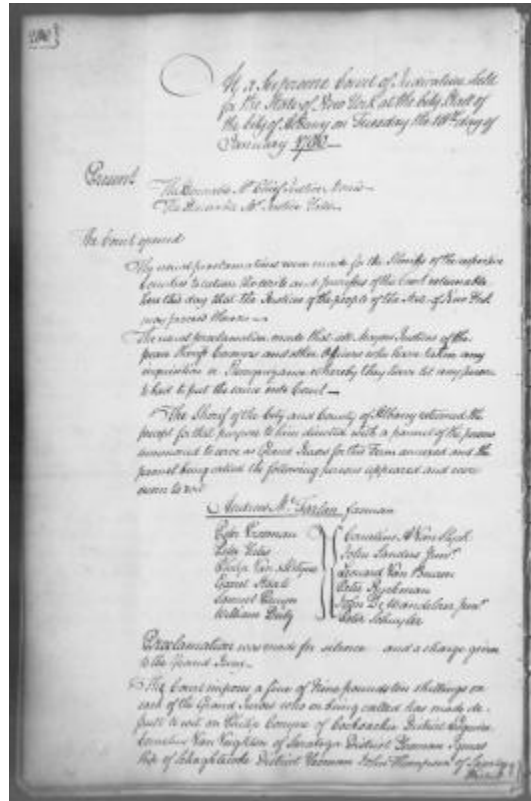 At a Supreme Court of Judicature held
for the State of New York at the City Hall of
the City of Albany on Tuesday the day of
January
Present
The Honorable Mr Chief Justice Morris
The Honorable Mr Justice Yates
The Court opened
The usual proclamations were made for the Sheriffs of the respective
Counties to return the writs and processes of this Court returnable
here this day that the Justices of the people of the State of New York
may proceed thereon
The usual proclamation made that all Justices of the
peace Coroners and other Officers who have taken any
inquisition or Recognizance whereby they have let any person
to bail to put the same into Court
The Sheriff of the City and County of Albany returned the
precept for that purpose to him directed with a pannel of the persons
summoned to serve as Grand Jurors for this Term annexed and the
pannel being called the following persons appeared and were
sworn to wit
Andrew Mc Farlan foreman
Peter Vrooman Cornelius A Van Slyck
Yates John Sanders Junr
Philip Van Leonard Van Buren
Peter Ryckman
Samuel John De Wandelaer Junr
William Peter Schuyler
Proclamation was made for silence and a charge given
to the Grand Jury
The Court impose a fine of Nine pounds ten shillings on
each of the Grand Jurors who on being called has made de-
fault to wit on Philip Conyne of Cocksackie District Esquire
Cornelius Van Veghten of Saratoga District Yeoman
of Schaghticoke District Yeoman John Thompson of Saratoga
District